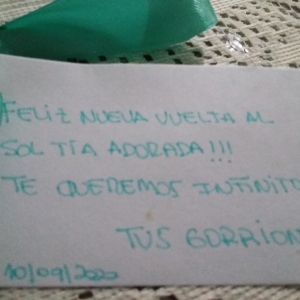 FELIZ NUEVA VUELTA AL
SOL TÍA ADORADA!!!
TE QUEREMOS INFINITO
TUS GORRION
10/09/2020